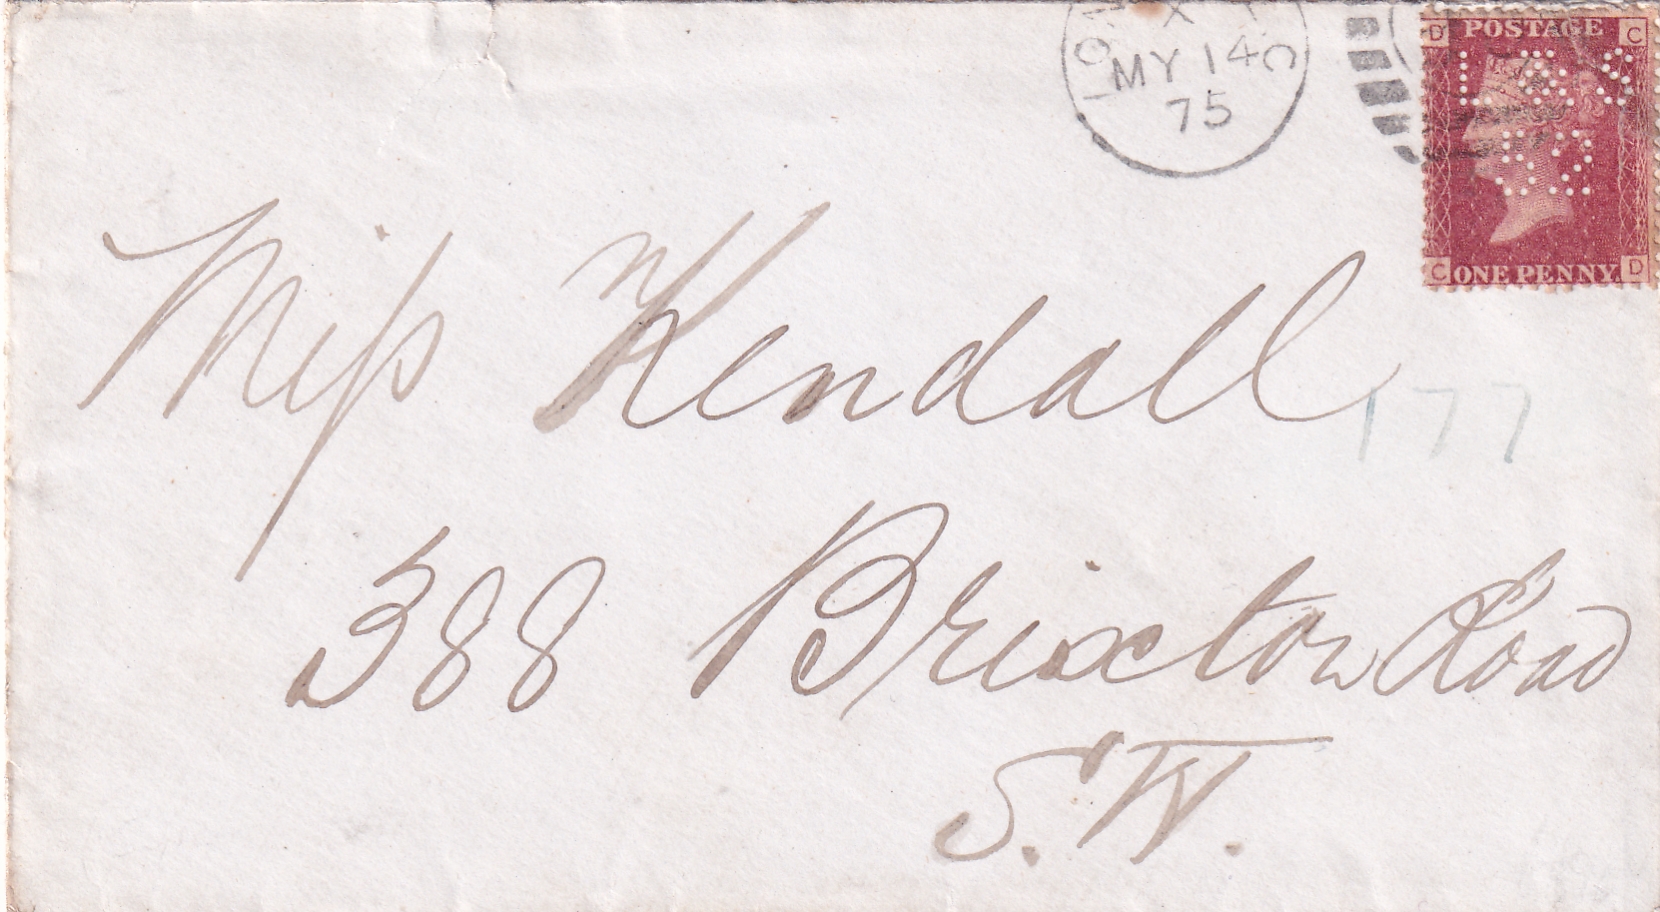 LON
X
MY 14
75
C
D POSTAGE C
C ONE PENNY D
Miss Kendall
177
388 Brixton Road
S.W.